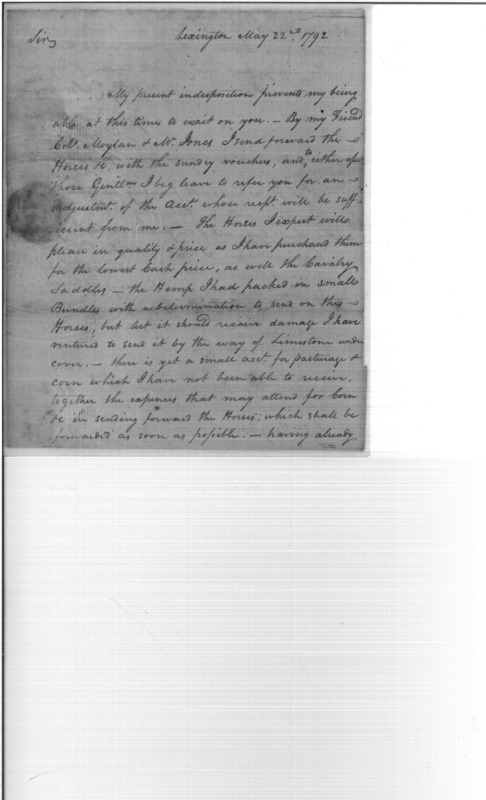 Sir, Lexington May 22nd 1792
My present indisposition prevents my being
able at this time to wait on you. — By my Friend
Colo. Moylan & Mr. Jones I send forward the —
Horses &c, with the sundry vouchers, and, to either of
those Gentlmn I beg leave to refer you for an —
adjustmt. of the Acct. whose rect will be suff-
icient from me. — The Horses I expect will
please in quality & price as I have purchased them
for the lowest Cash price, as well the Cavalry
Saddles — the Hemp I had packed in small
Bundles with a determination to send on the —
Horses, but lest it should receive damage I have
ventured to send it by the way of Limestone under
cover. — there is yet a small acct. for pasturage &
corn which I have not been able to receive,
together the expences that may attend for Corn
&c in sending forward the Horses; which shall be
forwarded as soon as possible. — having already